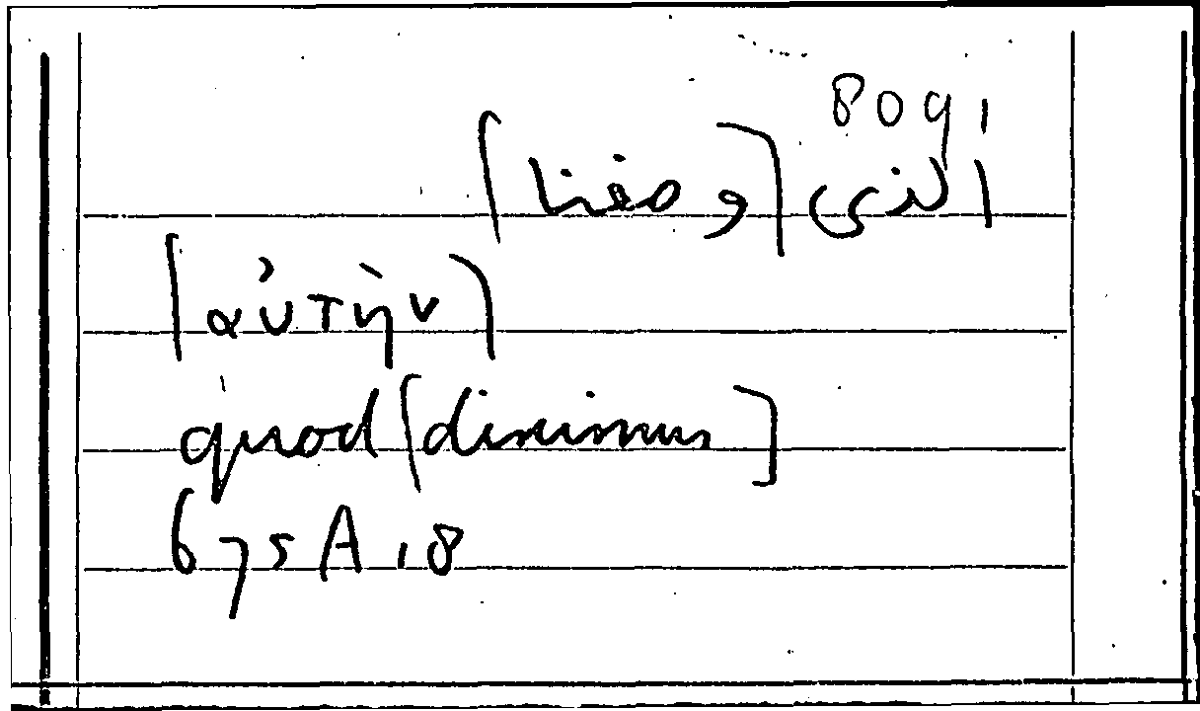 8091
الذى [وصفنا]
[αὐτὴν]
quod [diximus]
675A18